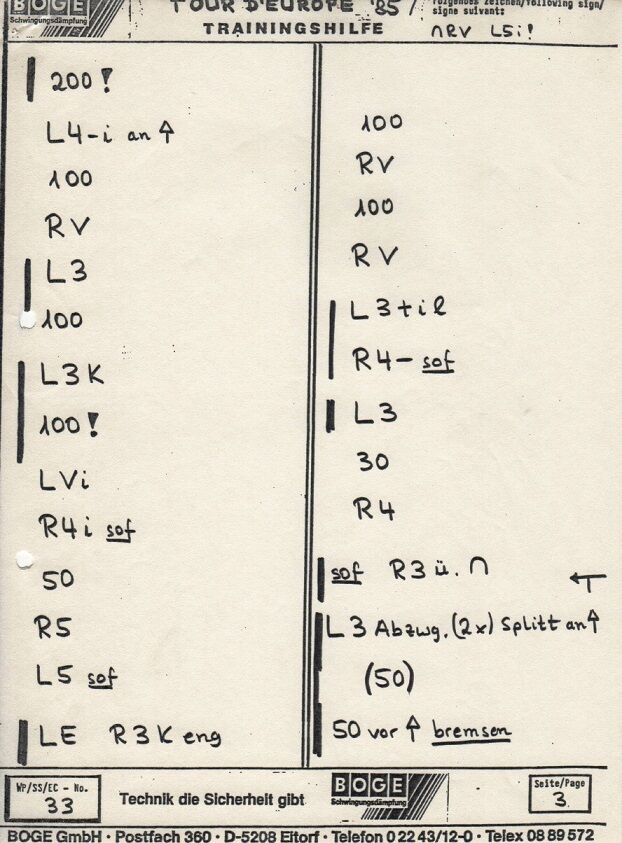 BOGE
Schwingungsdämpfung
TOUR D'EUROPE '85 /
TRAININGSHILFE
folgendes zeichen/following sign/
signe suivant:
nRV L5i!
200!
L4-i an ↑
100
RV
L3
100
L3K
100!
LVi
R4i sof
50
R5
L5 sof
LE R3K eng
100
RV
100
RV
L3+il
R4- sof
L3
30
R4
sof R3 ü. ∩
L3 Abzwg. (2x) Splitt an ↑
(50)
50 vor ↑ bremsen
WP/SS/EC - No.
33
Technik die Sicherheit gibt
BOGE
Schwingungsdämpfung
Seite/Page
3
BOGE GmbH · Postfach 360 · D-5208 Eitorf · Telefon 0 22 43/12-0 · Telex 08 89 572